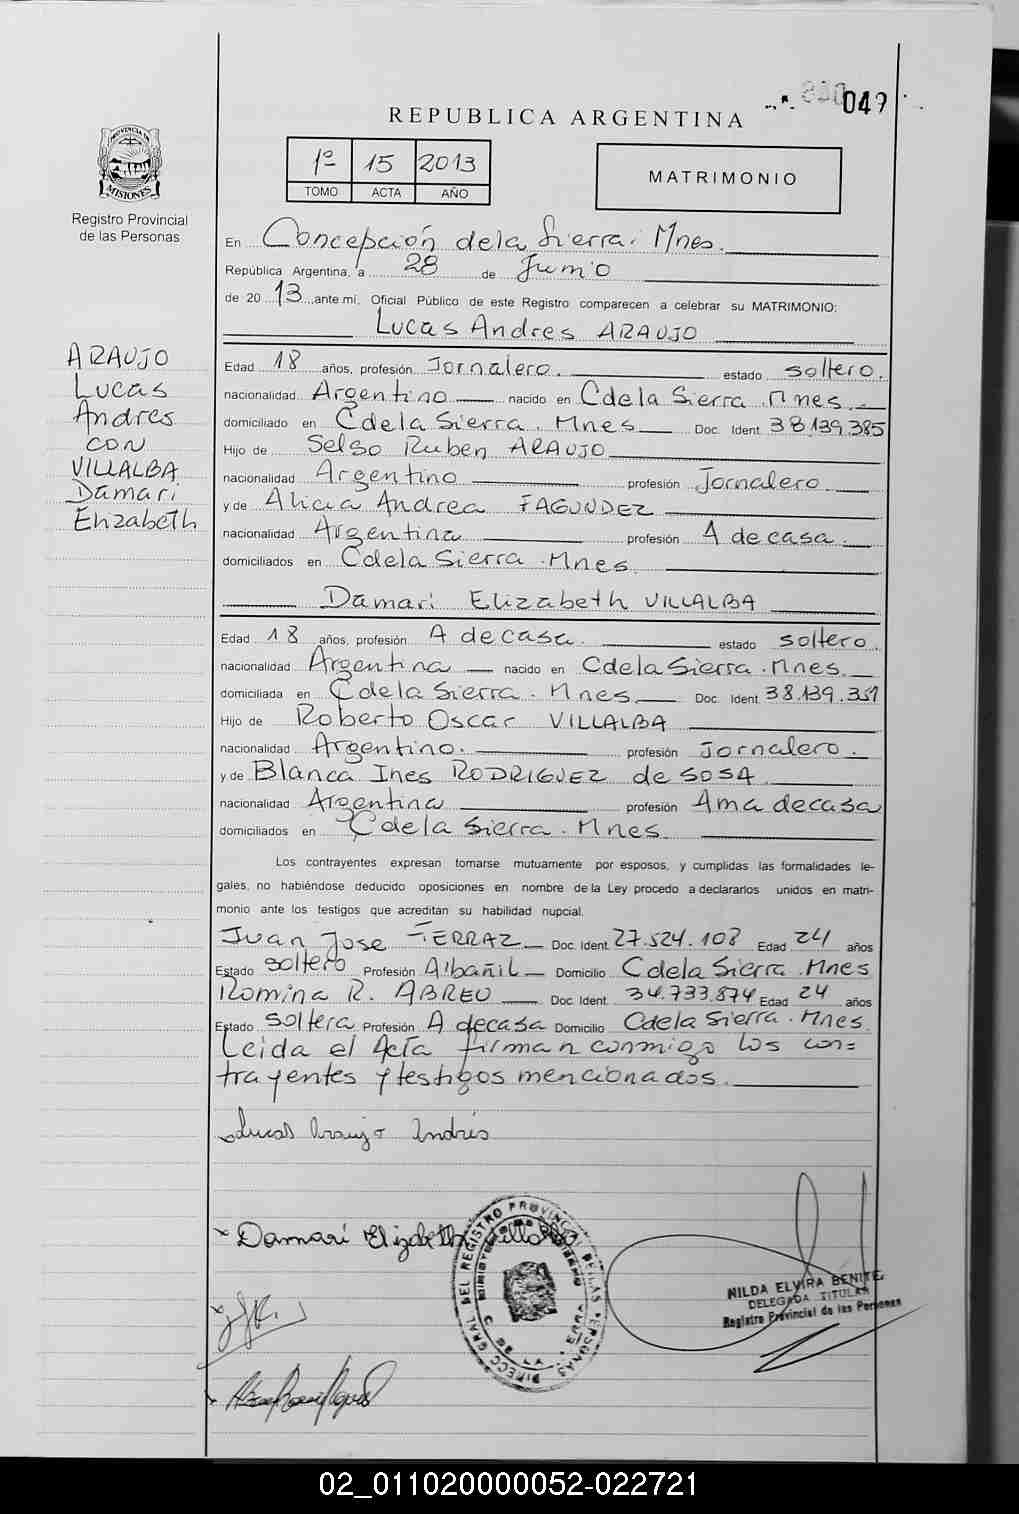 049
REPUBLICA ARGENTINA
1º 15 2013
TOMO ACTA AÑO
MATRIMONIO
PROVINCIA DE
MISIONES
Registro Provincial
de las Personas
En Concepción de la Sierra. Mnes.
República Argentina, a 28 de Junio
de 2013 ante mí, Oficial Público de este Registro comparecen a celebrar su MATRIMONIO:
Lucas Andres ARAUJO
ARAUJO
Lucas
Andres
CON
VILLALBA
Damari
Elizabeth
Edad 18 años, profesión Jornalero. estado soltero.
nacionalidad Argentino nacido en C de la Sierra. Mnes.
domiciliado en C de la Sierra. Mnes Doc. Ident. 38.139.385
Hijo de Selso Ruben ARAUJO
nacionalidad Argentino profesión Jornalero.
y de Alicia Andrea FAGUNDEZ
nacionalidad Argentina profesión A de casa.
domiciliados en C de la Sierra. Mnes.
Damari Elizabeth VILLALBA
Edad 18 años, profesión A de casa. estado soltero.
nacionalidad Argentina nacido en C de la Sierra. Mnes.
domiciliada en C de la Sierra. Mnes Doc. Ident. 38.139.351
Hijo de Roberto Oscar VILLALBA
nacionalidad Argentino. profesión Jornalero.
y de Blanca Ines RODRIGUEZ de SOSA
nacionalidad Argentina profesión Ama de casa
domiciliados en C de la Sierra. Mnes.
Los contrayentes expresan tomarse mutuamente por esposos, y cumplidas las formalidades le-
gales, no habiéndose deducido oposiciones en nombre de la Ley procedo a declararlos unidos en matri-
monio ante los testigos que acreditan su habilidad nupcial.
Juan Jose FERRAZ Doc. Ident. 27.524.108 Edad 24 años
Estado soltero Profesión Albañil Domicilio C de la Sierra. Mnes
Romina R. ABREU Doc. Ident. 34.733.874 Edad 24 años
Estado soltera Profesión A de casa Domicilio C de la Sierra. Mnes.
Leida el Acta firman conmigo los con=
trayentes y testigos mencionados.
Lucas Araujo Andrés
x Damari Elizabeth Villalba
NILDA ELVIRA BENITEZ
DELEGADA TITULAR
Registro Provincial de las Personas
DIRECC GRAL DEL REGISTRO PROVINCIAL DE LAS PERSONAS
02_011020000052-022721